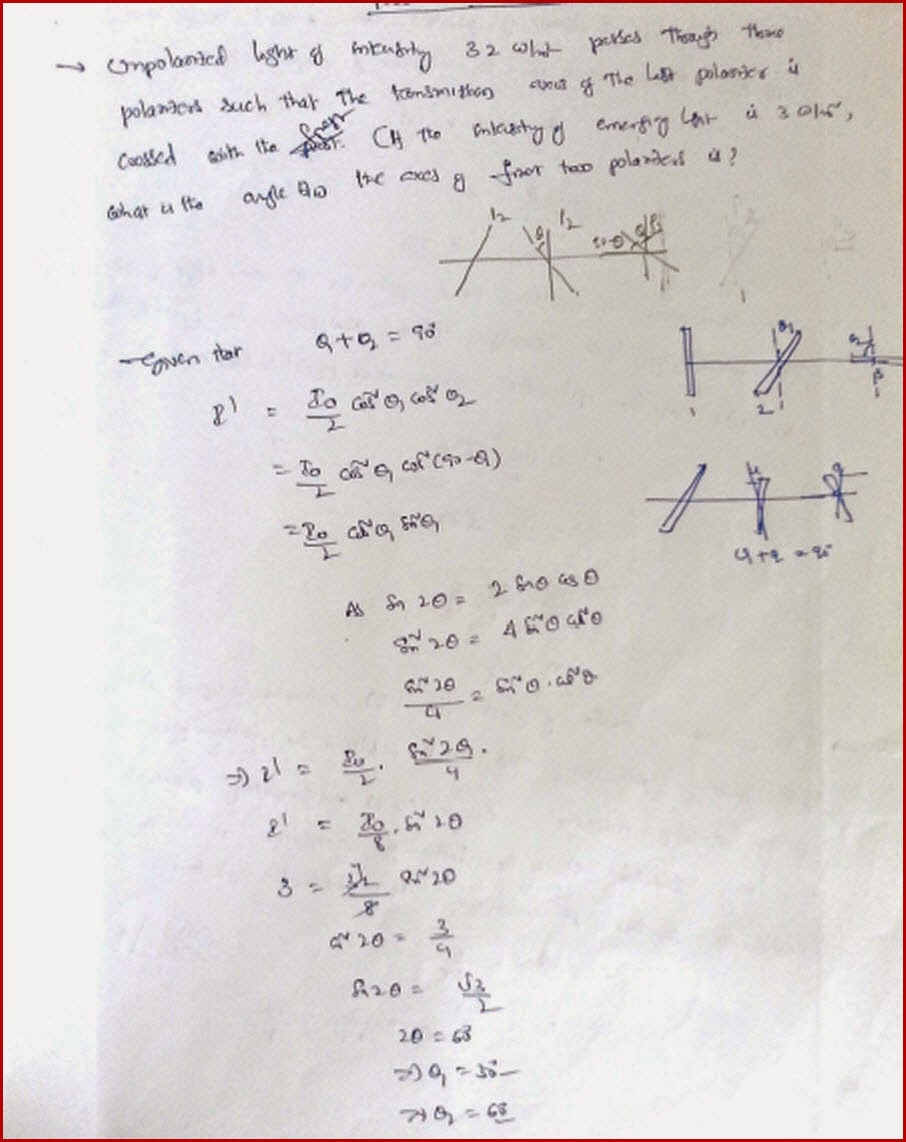 → unpolarized light of intensity 32 w/m² passes through three
polarizers such that The transmission axis of The last polarizer is
crossed with the first. If the intensity of emerging light is 3 w/m²,
what is the angle b/w the axes of first two polarizers is?
I₂ θ I₂ 90-θ
θ₁
1 2
- Given that θ₁+θ₂ = 90°
I' = I₀/2 cos²θ₁ cos²θ₂
= I₀/2 cos²θ₁ cos²(90-θ₁)
= I₀/2 cos²θ₁ sin²θ₁
θ₁+θ₂ = 90°
As sin 2θ = 2 sinθ cosθ
sin² 2θ = 4 sin²θ cos²θ
sin² 2θ/4 = sin²θ . cos²θ
⇒ I' = I₀/2 . sin² 2θ₁/4 .
I' = I₀/8 . sin² 2θ
3 = 32/8 sin² 2θ
sin² 2θ = 3/4
sin 2θ = √3/2
2θ = 60°
⇒ θ₁ = 30°
⇒ θ₂ = 60°